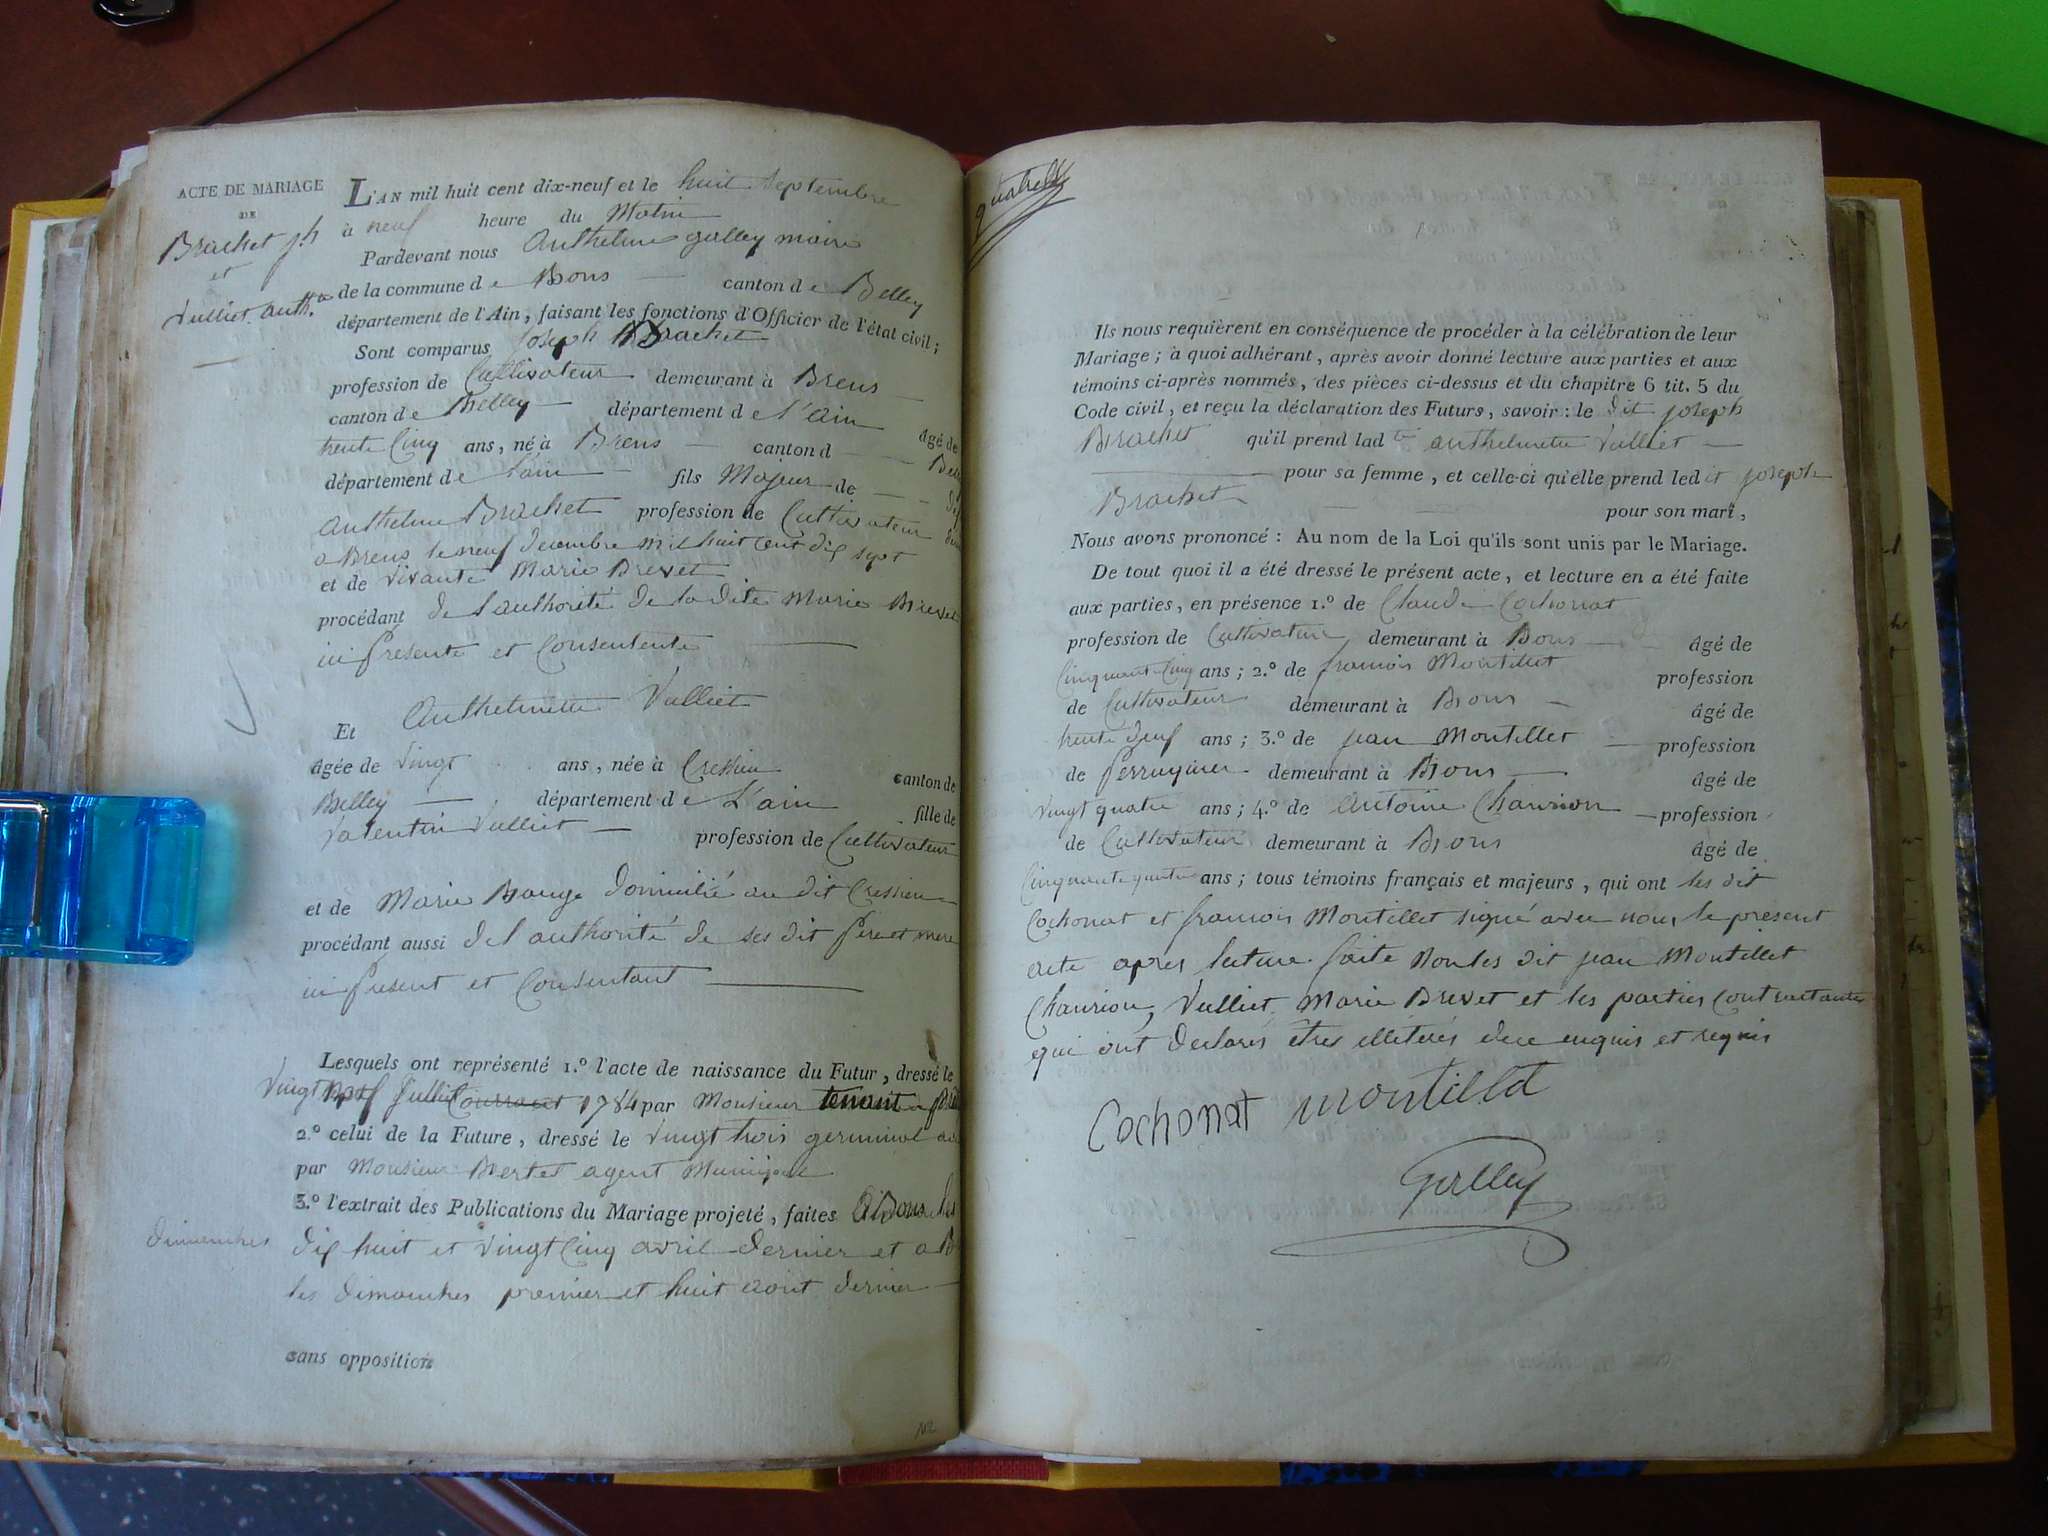 ACTE DE MARIAGE
DE
Brachet jh
et
Vulliet anth.
L'AN mil huit cent dix-neuf et le huit septembre
à neuf heure du Matin
Pardevant nous Anthelme galley maire
de la commune de Bons canton de Belley
département de l'Ain, faisant les fonctions d'Officier de l'état civil;
Sont comparus joseph Brachet
profession de Cultivateur demeurant à Brens
canton de Belley département de l'ain âgé de
trente Cinq ans, né à Brens canton d
département de l'ain fils Majeur de
anthelme Brachet profession de Cultivateur
a Brens le neuf decembre mil huit cent dix sept
et de vivante Marie Brevet
procédant de l'authorité de la dite Marie Brevet
ici presente et Consentente
Et Anthelmette Vulliet
âgée de vingt ans, née à Cressieu canton de
Belley département de L'ain fille de
Valentin Vulliet profession de Cultivateur
et de Marie Bouge domicilié au dit Cressieu
procédant aussi de l'authorité de ses dit pere et mere
ici present et Consentant
Lesquels ont représenté 1.º l'acte de naissance du Futur, dressé le
Vingt neuf Juillet Courrant 1784 par Monsieur tenant
2.º celui de la Future, dressé le vingt trois germinal
par Monsieur Bertet agent Municipal
3.º l'extrait des Publications du Mariage projeté, faites A Bons les
dimanches dix huit et vingt Cinq avril dernier et a
les dimanches premier et huit aout dernier
sans opposition
112
Ils nous requièrent en conséquence de procéder à la célébration de leur
Mariage; à quoi adhérant, après avoir donné lecture aux parties et aux
témoins ci-après nommés, des pièces ci-dessus et du chapitre 6 tit. 5 du
Code civil, et reçu la déclaration des Futurs, savoir: le dit joseph
Brachet qu'il prend lad te anthelmette Vulliet
pour sa femme, et celle-ci qu'elle prend ledit joseph
Brachet pour son mari,
Nous avons prononcé: Au nom de la Loi qu'ils sont unis par le Mariage.
De tout quoi il a été dressé le présent acte, et lecture en a été faite
aux parties, en présence 1.º de Claude Cochonat
profession de Cultivateur demeurant à Bons âgé de
Cinquant Cinq ans; 2.º de francois Montillet profession
de Cultivateur demeurant à Bons âgé de
trente neuf ans; 3.º de jean Montillet profession
de perruquier demeurant à Bons âgé de
vingt quatre ans; 4.º de Antoine Chaurion profession
de Cultivateur demeurant à Bons âgé de
Cinquante quatre ans; tous témoins français et majeurs, qui ont les dit
Cochonat et francois Montillet signé avec nous le present
acte apres lecture faite Non les dit jean Montillet
Chaurion, Vulliet, Marie Brevet et les parties Contractantes
qui ont declarés êtres illéterés de ce enquis et requis
Cochonat montillet
Galley